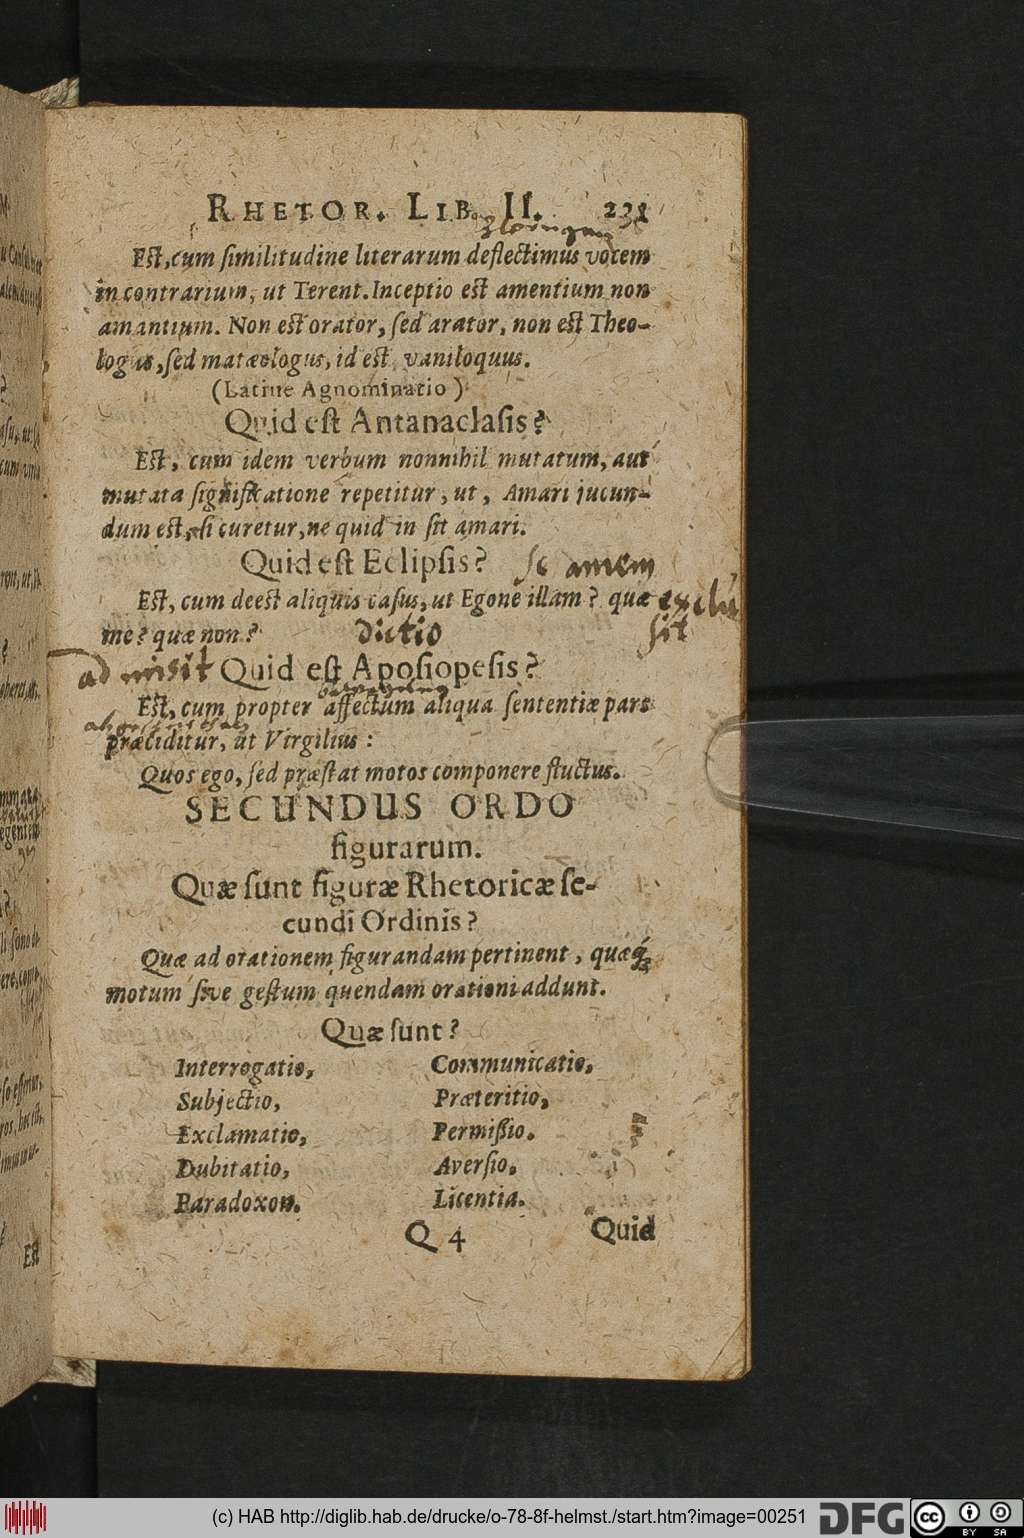 RHETOR. LIB. II. 231
Est, cum similitudine literarum deflectimus vocem
in contrarium, ut Terent. Inceptio est amentium non
amantium. Non est orator, sed arator, non est Theo-
logus, sed matæologus, id est, vaniloquus.
(Latine Agnominatio)
Quid est Antanaclasis?
Est, cum idem verbum nonnihil mutatum, aut
mutata significatione repetitur, ut, Amari jucun-
dum est, si curetur, ne quid in sit amari.
Quid est Eclipsis? sc amem
Est, cum deest aliquis casus, ut Egone illam? quæ exclu
me? quæ non? dictio sit
ad misit Quid est Aposiopesis?
Est, cum propter affectum aliqua sententiæ pars
præciditur, ut Virgilius:
Quos ego, sed præstat motos componere fluctus.
SECUNDUS ORDO
figurarum.
Quæ sunt figuræ Rhetoricæ se-
cundi Ordinis?
Quæ ad orationem figurandam pertinent, quæq;
motum sive gestum quendam orationi addunt.
Quæ sunt?
Interrogatio, Communicatio,
Subjectio, Præteritio,
Exclamatio, Permißio.
Dubitatio, Aversio,
Paradoxon. Licentia.
Q 4 Quid
Est
(c) HAB http://diglib.hab.de/drucke/o-78-8f-helmst./start.htm?image=00251
DFG
cc BY SA